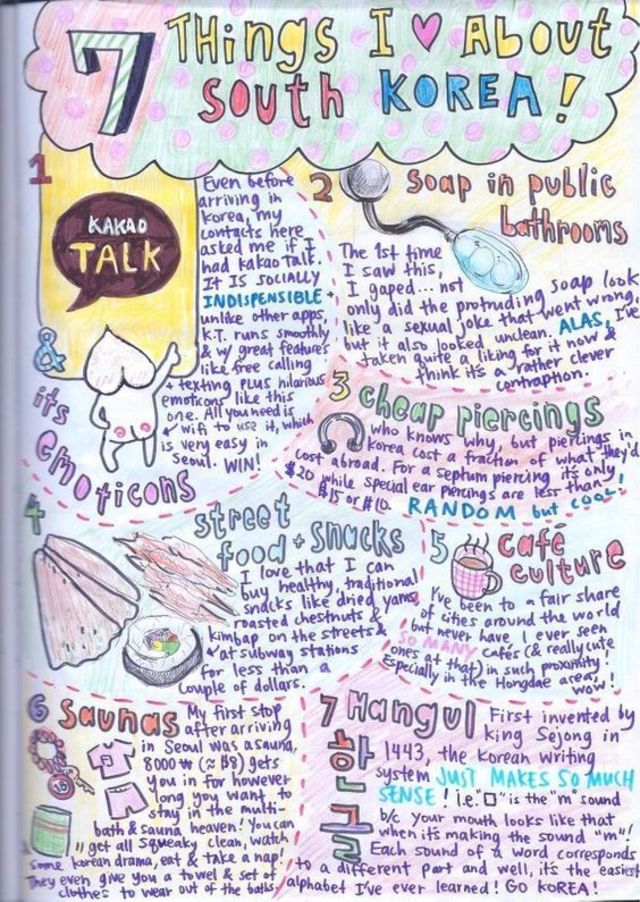 7 THings I ♥ About
South KOREA!
1
KAKAO
TALK
& its emoticons
Even before
arriving in
Korea, my
contacts here
asked me if I
had Kakao Talk.
IT IS SOCIALLY
INDISPENSIBLE +
unlike other apps,
K.T. runs smoothly
& w/ great features
like free calling
+ texting PLUS hilarious
emoticons like this
one. All you need is
wifi to use it, which
is very easy in
Seoul. WIN!
2 Soap in public
bathrooms
The 1st time
I saw this,
I gaped... not
only did the protruding soap look
like a sexual joke that went wrong
but it also looked unclean. ALAS, I've
taken quite a liking for it now &
think it's a rather clever
contraption.
3 cheap piercings
who knows why, but piercings in
Korea cost a fraction of what they'd
cost abroad. For a septum piercing it's only
$20 while special ear piercings are less than
$15 or $10. RANDOM but COOL!
4 street
food + snacks
I love that I can
buy healthy, traditional
snacks like dried yams,
roasted chestnuts &
kimbap on the streets &
at subway stations
for less than a
couple of dollars.
5 café
culture
I've been to a fair share
of cities around the world
but never have I ever seen
SO MANY cafés (& really cute
ones at that) in such proximity!
Especially in the Hongdae area,
wow!
6 Saunas
My first stop
after arriving
in Seoul was a sauna,
8000 ₩ (≈ $8) gets
you in for however
long you want to
stay in the multi-
bath & sauna heaven! You can
get all squeaky clean, watch
some Korean drama, eat & take a nap!
They even give you a towel & set of
clothes to wear out of the baths.
7 Hangul
한글
First invented by
King Sejong in
1443, the Korean writing
system JUST MAKES SO MUCH
SENSE! i.e. "ㅁ" is the "m" sound
b/c your mouth looks like that
when it's making the sound "m"!
Each sound of a word corresponds
to a different part and well, it's the easiest
alphabet I've ever learned! GO KOREA!